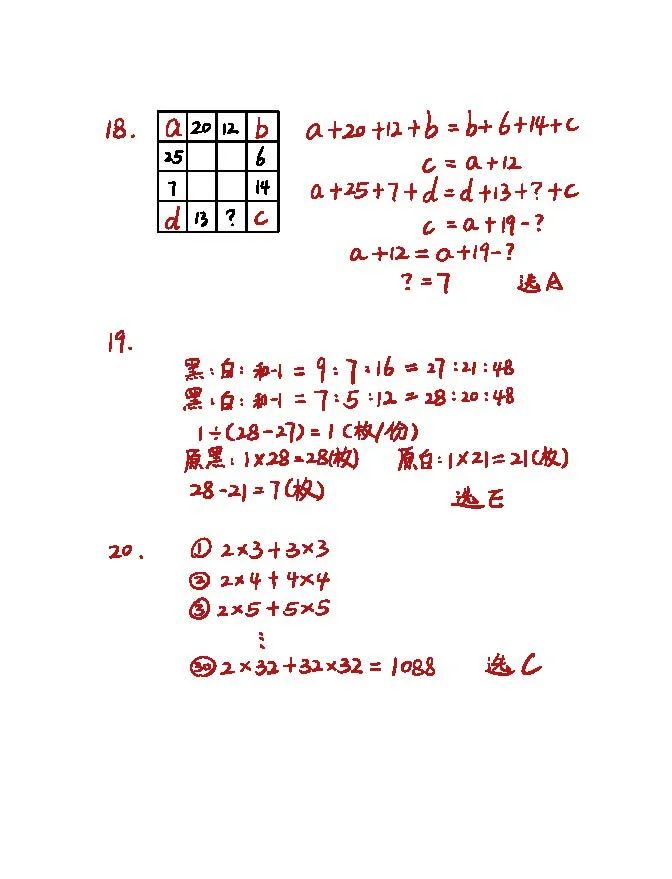 18.
a 20 12 b
25 6
7 14
d 13 ? c
a+20+12+b=b+6+14+c
c=a+12
a+25+7+d=d+13+?+c
c=a+19-?
a+12=a+19-?
?=7 选A
19.
黑:白:和-1=9:7:16=27:21:48
黑:白:和-1=7:5:12=28:20:48
1÷(28-27)=1(枚/份)
原黑:1×28=28(枚) 原白:1×21=21(枚)
28-21=7(枚) 选E
20. ① 2×3+3×3
② 2×4+4×4
③ 2×5+5×5
⋮
㉚ 2×32+32×32=1088 选C